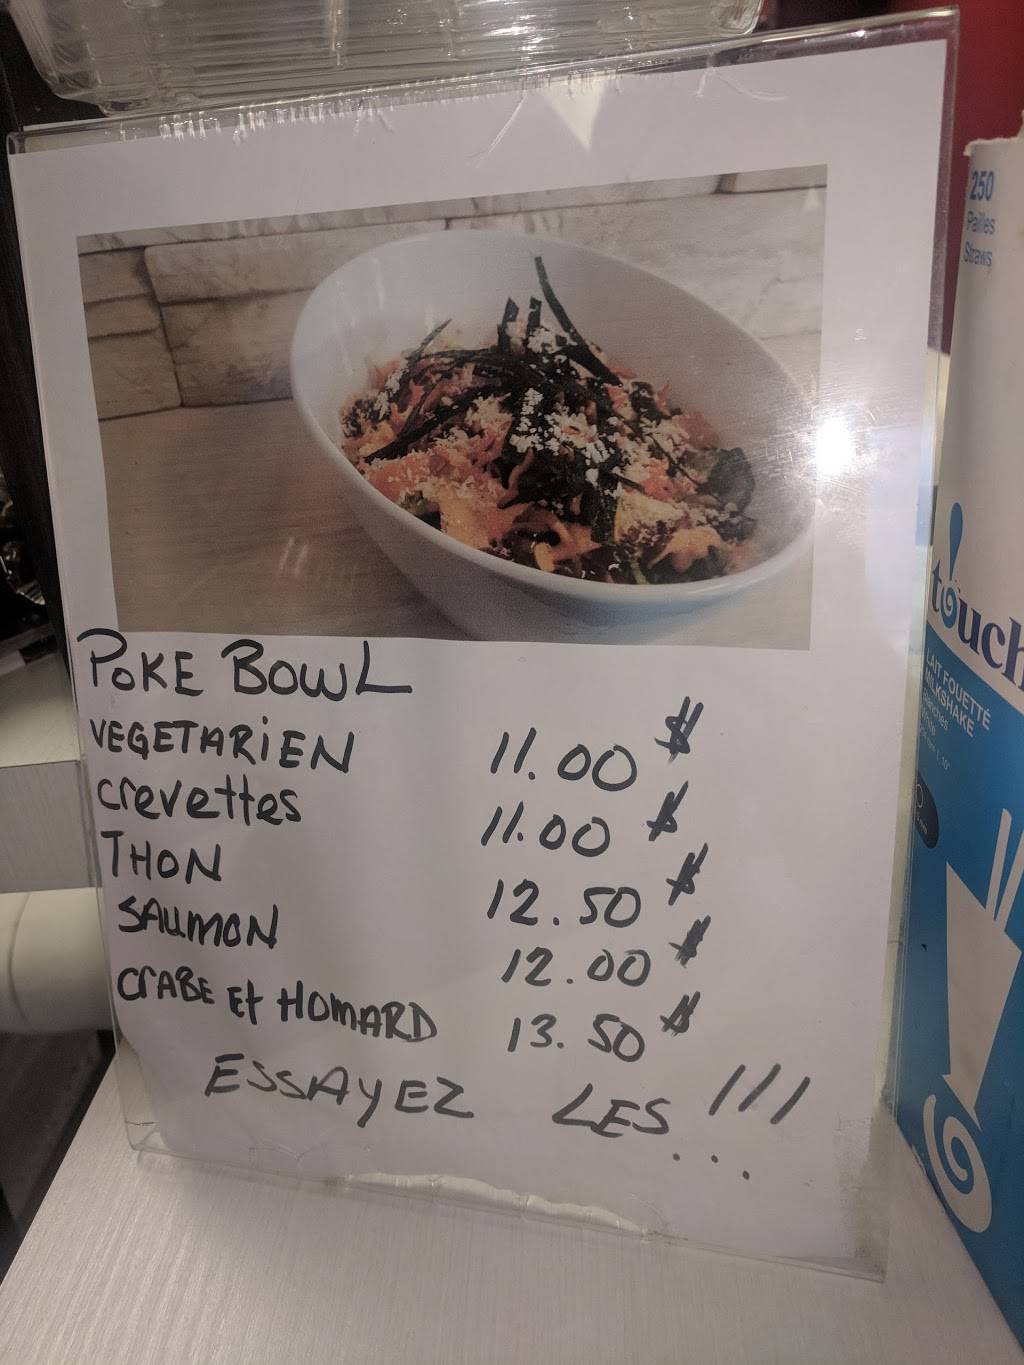 POKE BOWL
VEGETARIEN 11.00 $
crevettes 11.00 $
THON 12.50 $
SAUMON 12.00 $
CRABE Et HOMARD 13.50 $
ESSAYEZ LES !!!
250
Pailles
Straws
touch
LAIT FOUETTÉ
MILKSHAKE